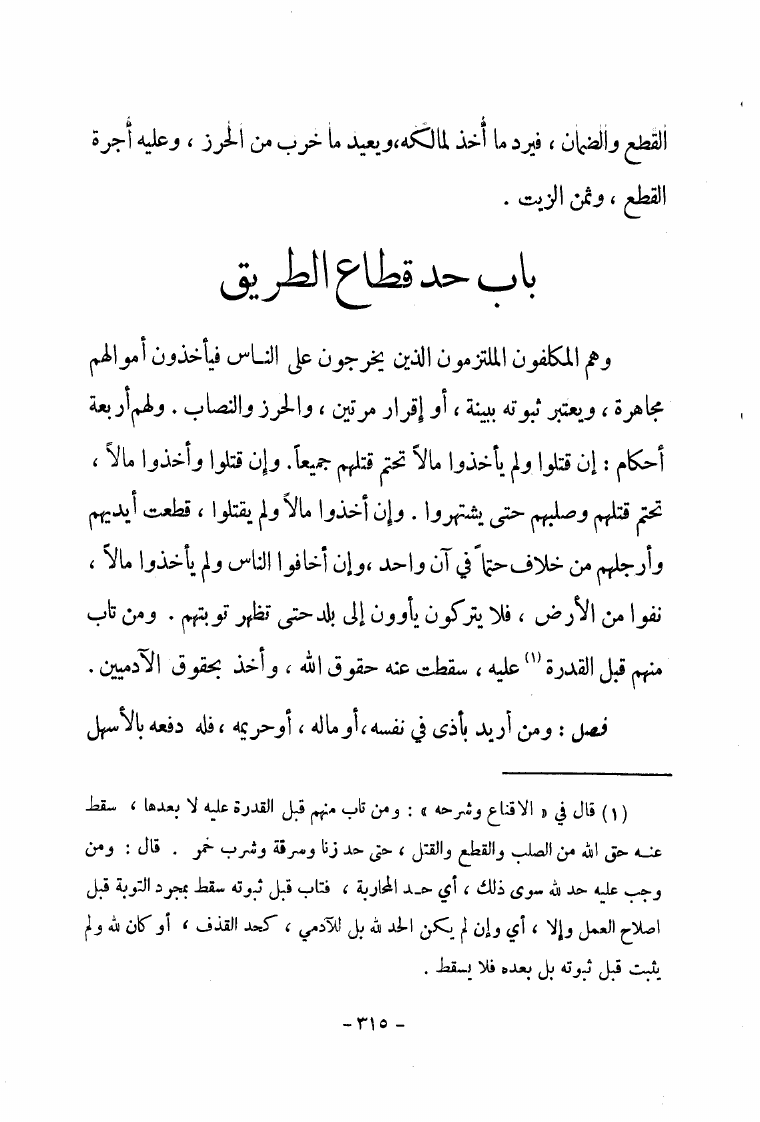 القطع والضمان ، فيرد ما أُخذ لمالكه،ويعيد ما خرب من الحرز ، وعليه أُجرة
القطع ، وثمن الزيت .
باب حد قطاع الطريق
وهم المكلفون الملتزمون الذين يخرجون على النـاس فيأخذون أموالهم
مجاهرة ، ويعتبر ثبوته ببينة ، أو إقرار مرتين ، والحرز والنصاب . ولهم أربعة
أحكام : إن قتلوا ولم يأخذوا مالاً تحتم قتلهم جميعاً. وإن قتلوا وأخذوا مالاً ،
تحتم قتلهم وصلبهم حتى يشتهروا . وإن أخذوا مالاً ولم يقتلوا ، قطعت أيديهم
وأرجلهم من خلاف حتماً في آن واحد ،وإن أخافوا الناس ولم يأخذوا مالاً ،
نفوا من الأرض ، فلا يتركون يأوون إلى بلد حتى تظهر توبتهم . ومن تاب
منهم قبل القدرة (١) عليه ، سقطت عنه حقوق الله ، وأخذ بحقوق الآدميين .
فصل : ومن أريد بأذى في نفسه،أو ماله ، أو حريمه ، فله دفعه بالأسهل
(١) قال في « الاقناع وشرحه » : ومن تاب منهم قبل القدرة عليه لا بعدها ، سقط
عنـه حق الله من الصلب والقطع والقتل ، حتى حد زنا وسرقة وشرب خمر . قال : ومن
وجب عليه حد لله سوى ذلك ، أي حـد المحاربة ، فتاب قبل ثبوته سقط بمجرد التوبة قبل
اصلاح العمل وإلا ، أي وإن لم يكن الحد لله بل للآدمي ، كحد القذف ، أو كان لله ولم
يثبت قبل ثبوته بل بعده فلا يسقط .
- ٣١٥ -